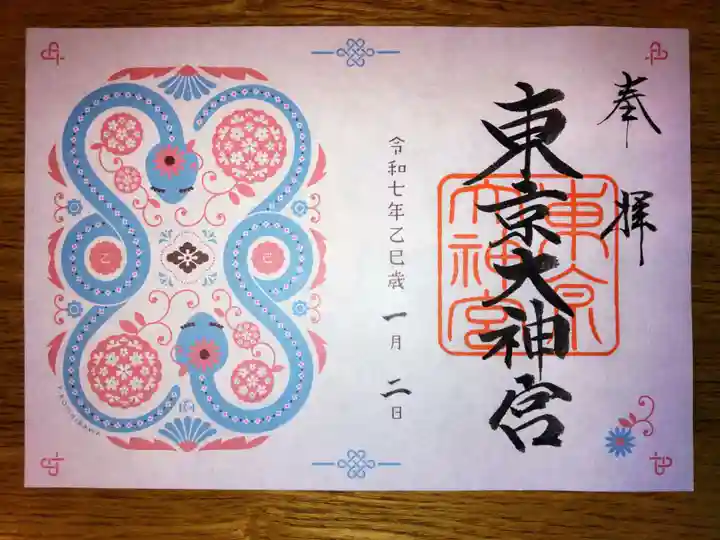 奉拝
東京大神宮
東京
大神宮
令和七年乙巳歳一月二日
乙
巳